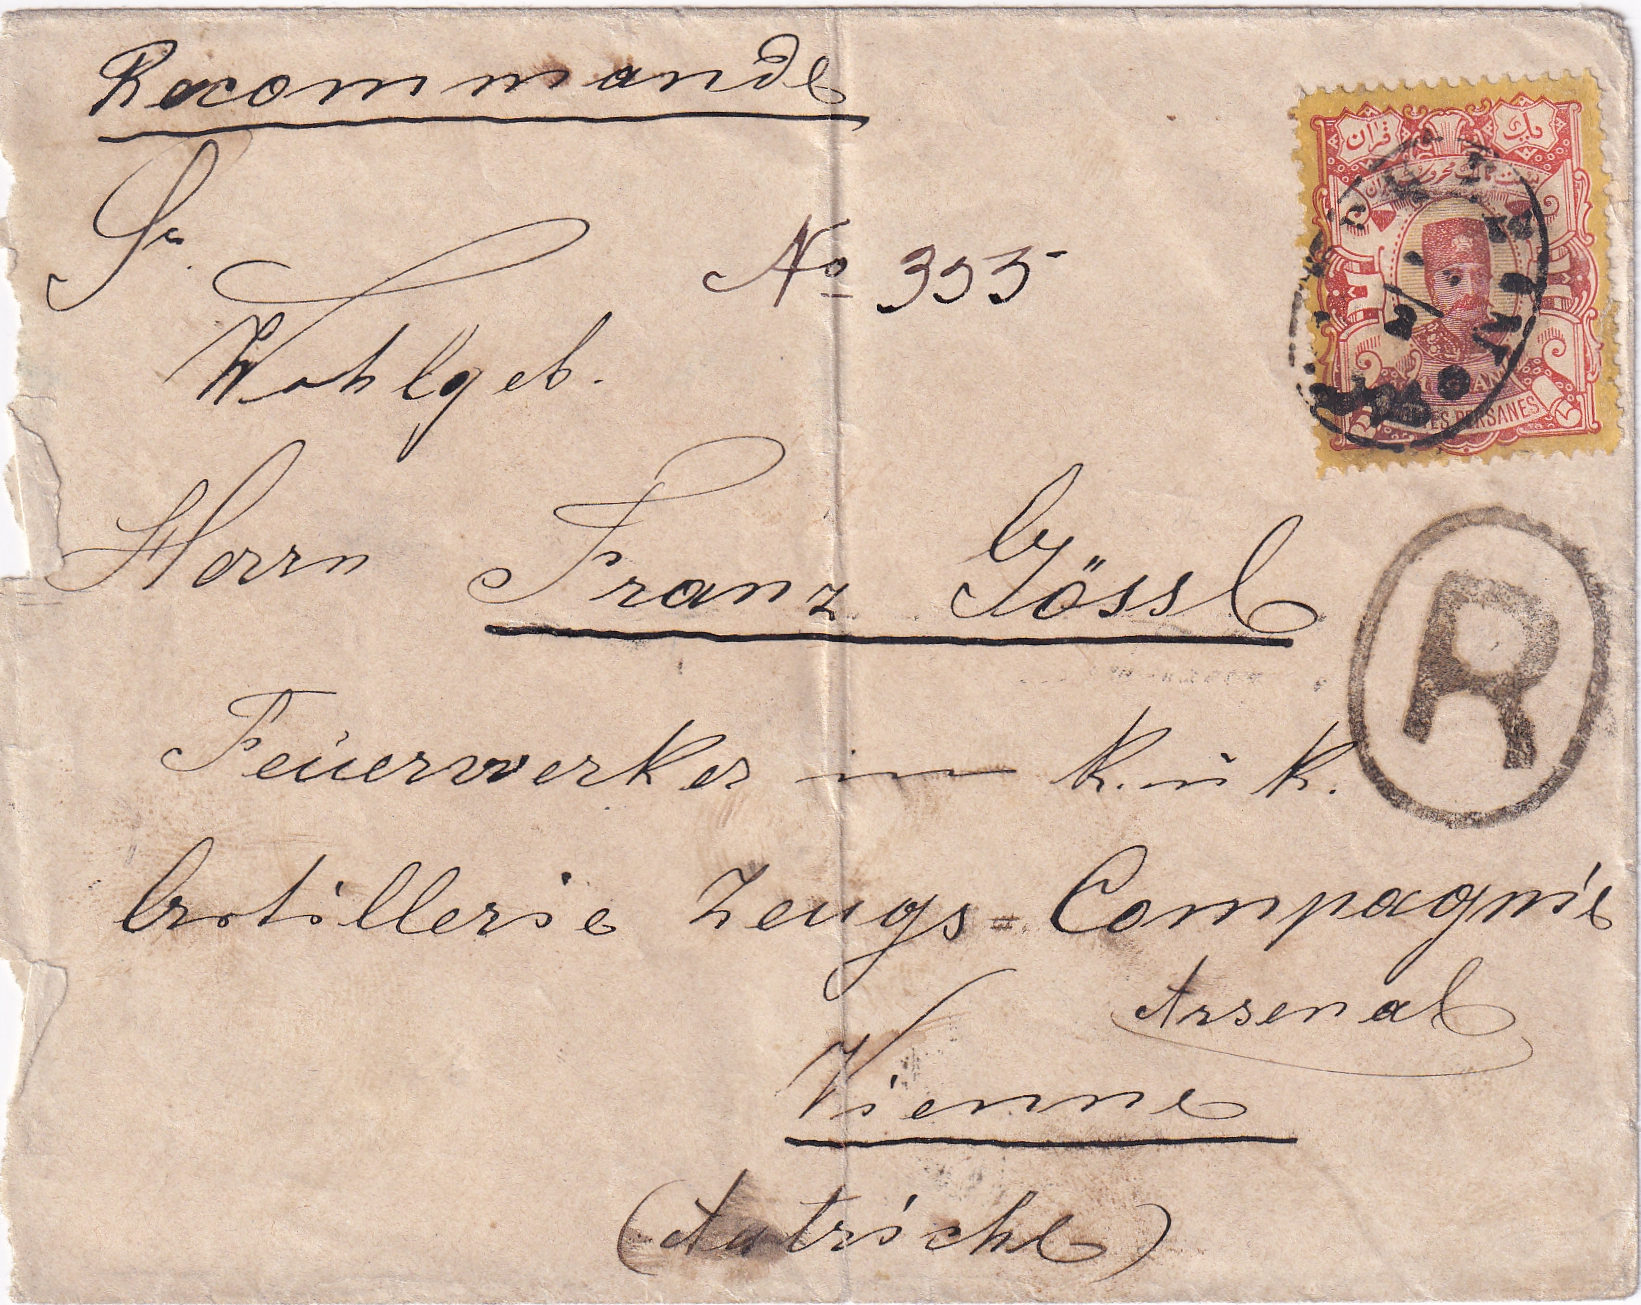 Recommande
Sr.
No 355
Wohlgeb.
Herrn Franz Gössl
Feuerwerker in k. u. k.
Artillerie Zeugs=Compagnie
Arsenal
Vienne
(Autriche)
قران
يک
PERSANES
R